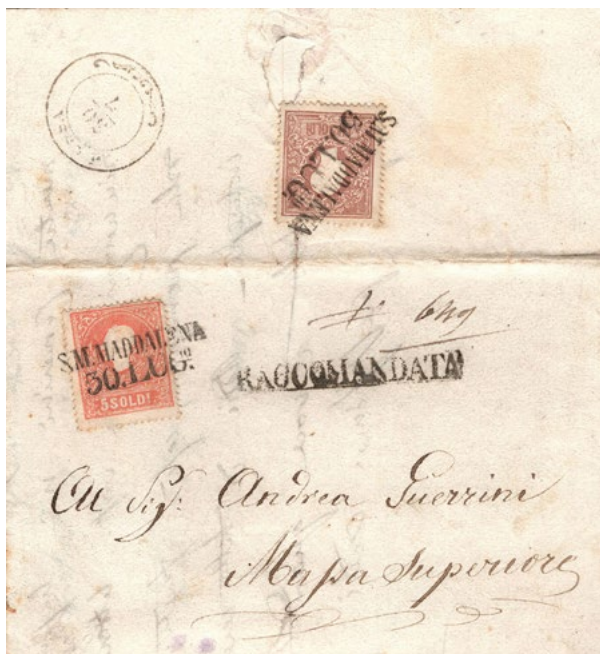 S.M. MADDALENA
30. LUG.
SOLDI
S.M. MADDALENA
30. LUG.º
5 SOLDI
649
RACCOMANDATA
Al Sig.r Andrea Guerrini
Massa Superiore